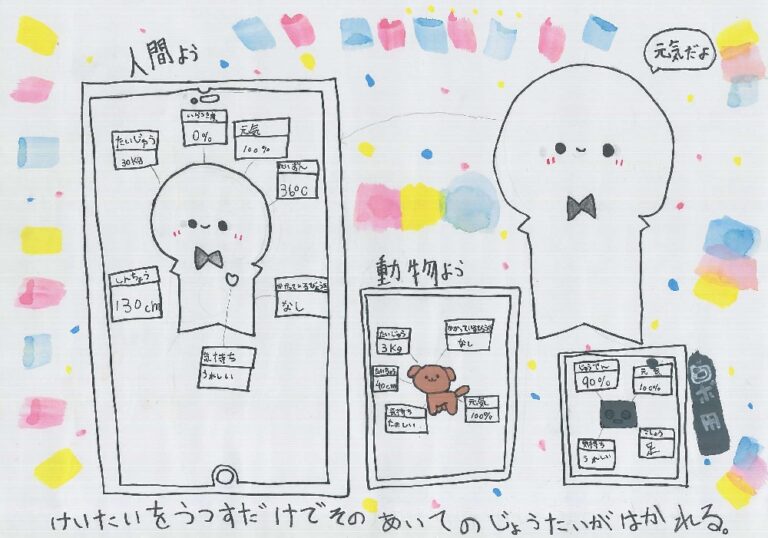 人間よう
元気だよ
いらつき度
0%
元気
100%
たいじゅう
30Kg
たいおん
36°C
しんちょう
130cm
かかっているびょうき
なし
気持ち
うれしい
動物よう
たいじゅう
3Kg
かかっているびょうき
なし
たいちょう
40cm
気持ち
たのしい
元気
100%
ロボ用
じゅうでん
90%
元気
100%
気持ち
うれしい
こしょう
けいたいをうつすだけでそのあいてのじょうたいがはかれる。